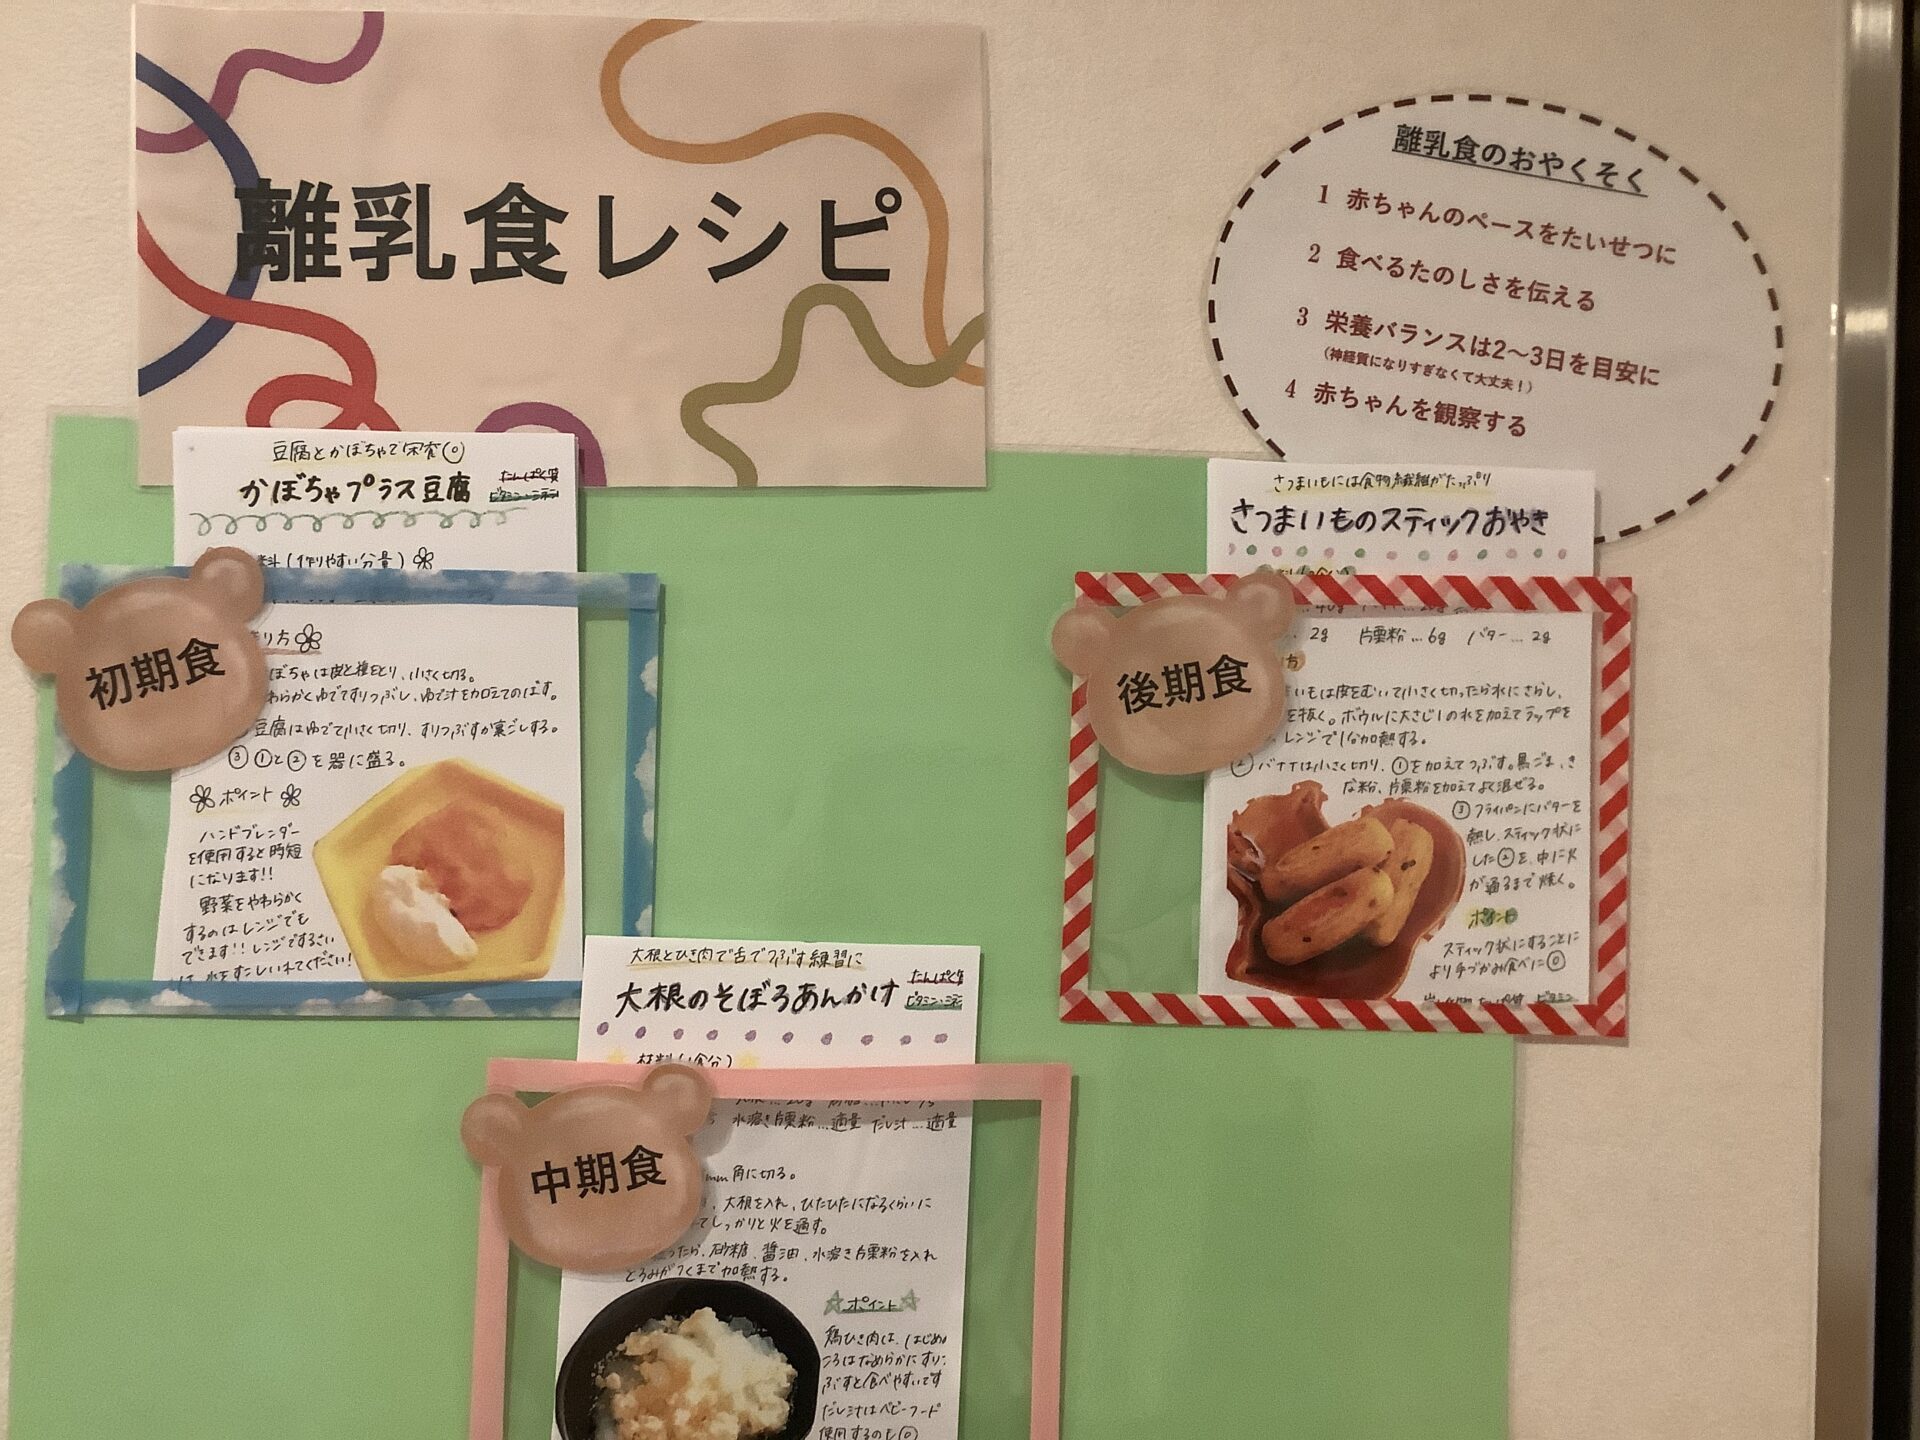 離乳食レシピ
離乳食のおやくそく
1 赤ちゃんのペースをたいせつに
2 食べるたのしさを伝える
3 栄養バランスは2〜3日を目安に
(神経質になりすぎなくて大丈夫！)
4 赤ちゃんを観察する
豆腐とかぼちゃで栄養◎
かぼちゃプラス豆腐
たんぱく質
ビタミン・ミネラル
料(作りやすい分量)
初期食
り方
ぼちゃは皮と種をとり、小さく切る。
わらかくゆでてすりつぶし、ゆで汁を加えてのばす。
豆腐はゆでて小さく切り、すりつぶすか裏ごしする。
③ ①と②を器に盛る。
ポイント
ハンドブレンダー
を使用すると時短
になります!!
野菜をやわらかく
するのはレンジでも
できます!! レンジでするさい
は、水をすこしいれてください!
さつまいもには食物繊維がたっぷり
さつまいものスティックおやき
後期食
2g 片栗粉…6g バター…2g
方
いもは皮をむいて小さく切ったら水にさらし、
を抜く。ボウルに大さじ1の水を加えてラップを
レンジで1分加熱する。
② バナナは小さく切り、①を加えてつぶす。黒ごま、き
な粉、片栗粉を加えてよく混ぜる。
③ フライパンにバターを
熱し、スティック状に
した②を、中に火
が通るまで焼く。
ポイント
スティック状にすることに
より手づかみ食べに◎
大根とひき肉で舌でつぶす練習に
大根のそぼろあんかけ
たんぱく質
ビタミン・ミネラル
材料(1食分)
中期食
水溶き片栗粉…適量 だし汁…適量
mm角に切る。
、大根を入れ、ひたひたになるくらいに
てしっかりと火を通す。
ったら、砂糖、醤油、水溶き片栗粉を入れ
とろみがつくまで加熱する。
ポイント
鶏ひき肉は、はじめの
ころはなめらかにすりつ
ぶすと食べやすいです
だし汁はベビーフード
使用するのも◎